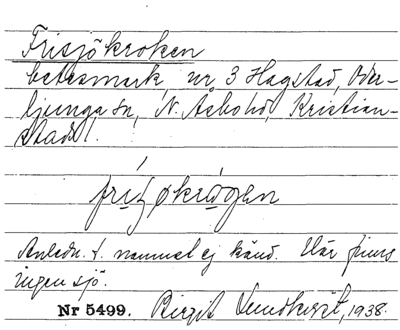 Frisjökroken
betesmark, nr 3 Hagstad, Öder-
ljunga sn, N. Åsbo hd, Kristian-
stads l.
Anledn. t. namnet ej känd. Här finns
ingen sjö.
Nr 5499. Birgit Lundkvist, 1938.